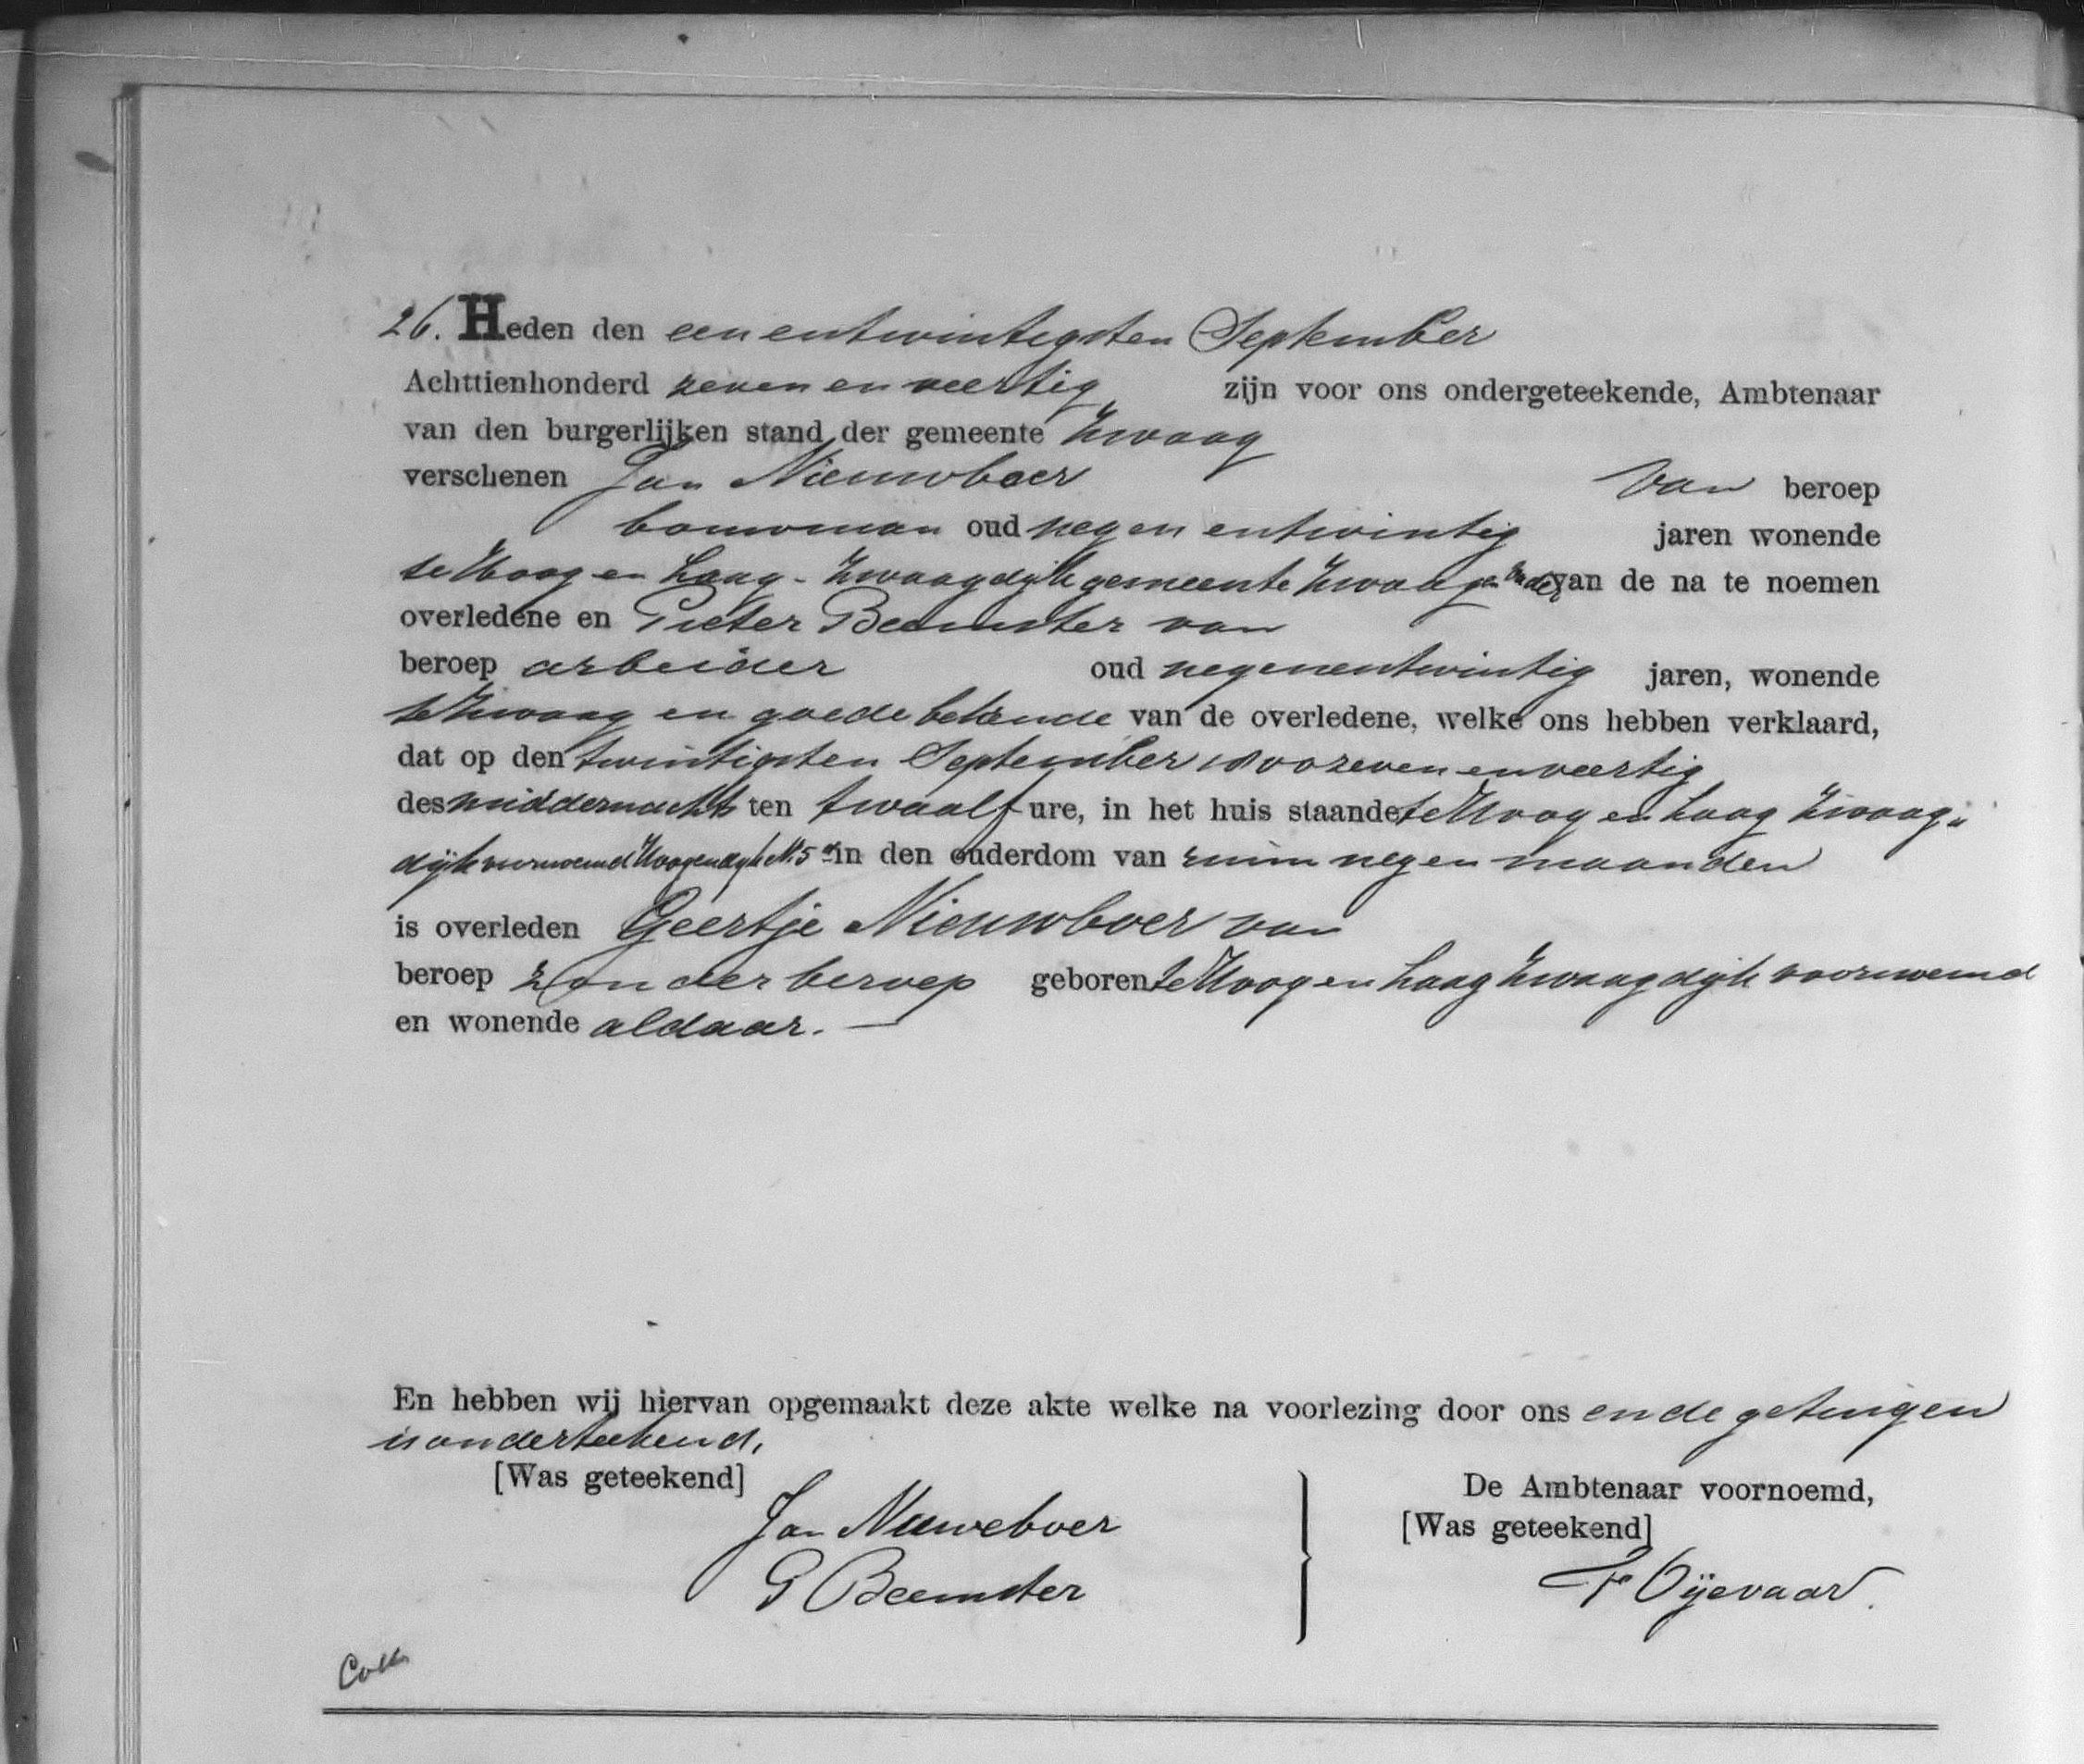 26. Heden den een en twintigsten September
Achttienhonderd zeven en veertig zijn voor ons ondergeteekende, Ambtenaar
van den burgerlijken stand der gemeente Zwaag
verschenen Jan Nieuwboer van beroep
bouwman oud negen en twintig jaren wonende
te Hoog en Laag-Zwaagdijk gemeente Zwaag en vader van de na te noemen
overledene en Pieter Beemster van
beroep arbeider oud negenentwintig jaren, wonende
te Zwaag en goede bekende van de overledene, welke ons hebben verklaard,
dat op den twintigsten September 1800 zeven en veertig
des middernachts ten twaalf ure, in het huis staande te Hoog en Laag Zwaag„
dijk voornoemd Hoogendijk N. 5 in den ouderdom van ruim negen maanden
is overleden Geertje Nieuwboer van
beroep zonder beroep geboren te Hoog en Laag Zwaagdijk voornoemd
en wonende aldaar. —
En hebben wij hiervan opgemaakt deze akte welke na voorlezing door ons en de getuigen
is onderteekend.
[Was geteekend] De Ambtenaar voornoemd,
Jan Nieuweboer [Was geteekend]
P Beemster Oijevaar.